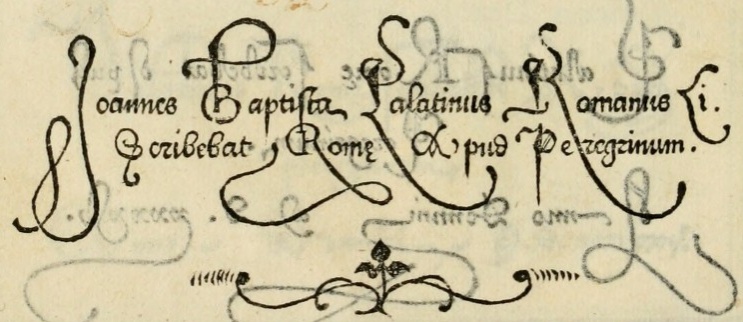 Joannes Baptista Palatinus Romanus Ci.
Scribebat Romę Apud Peregrinum.